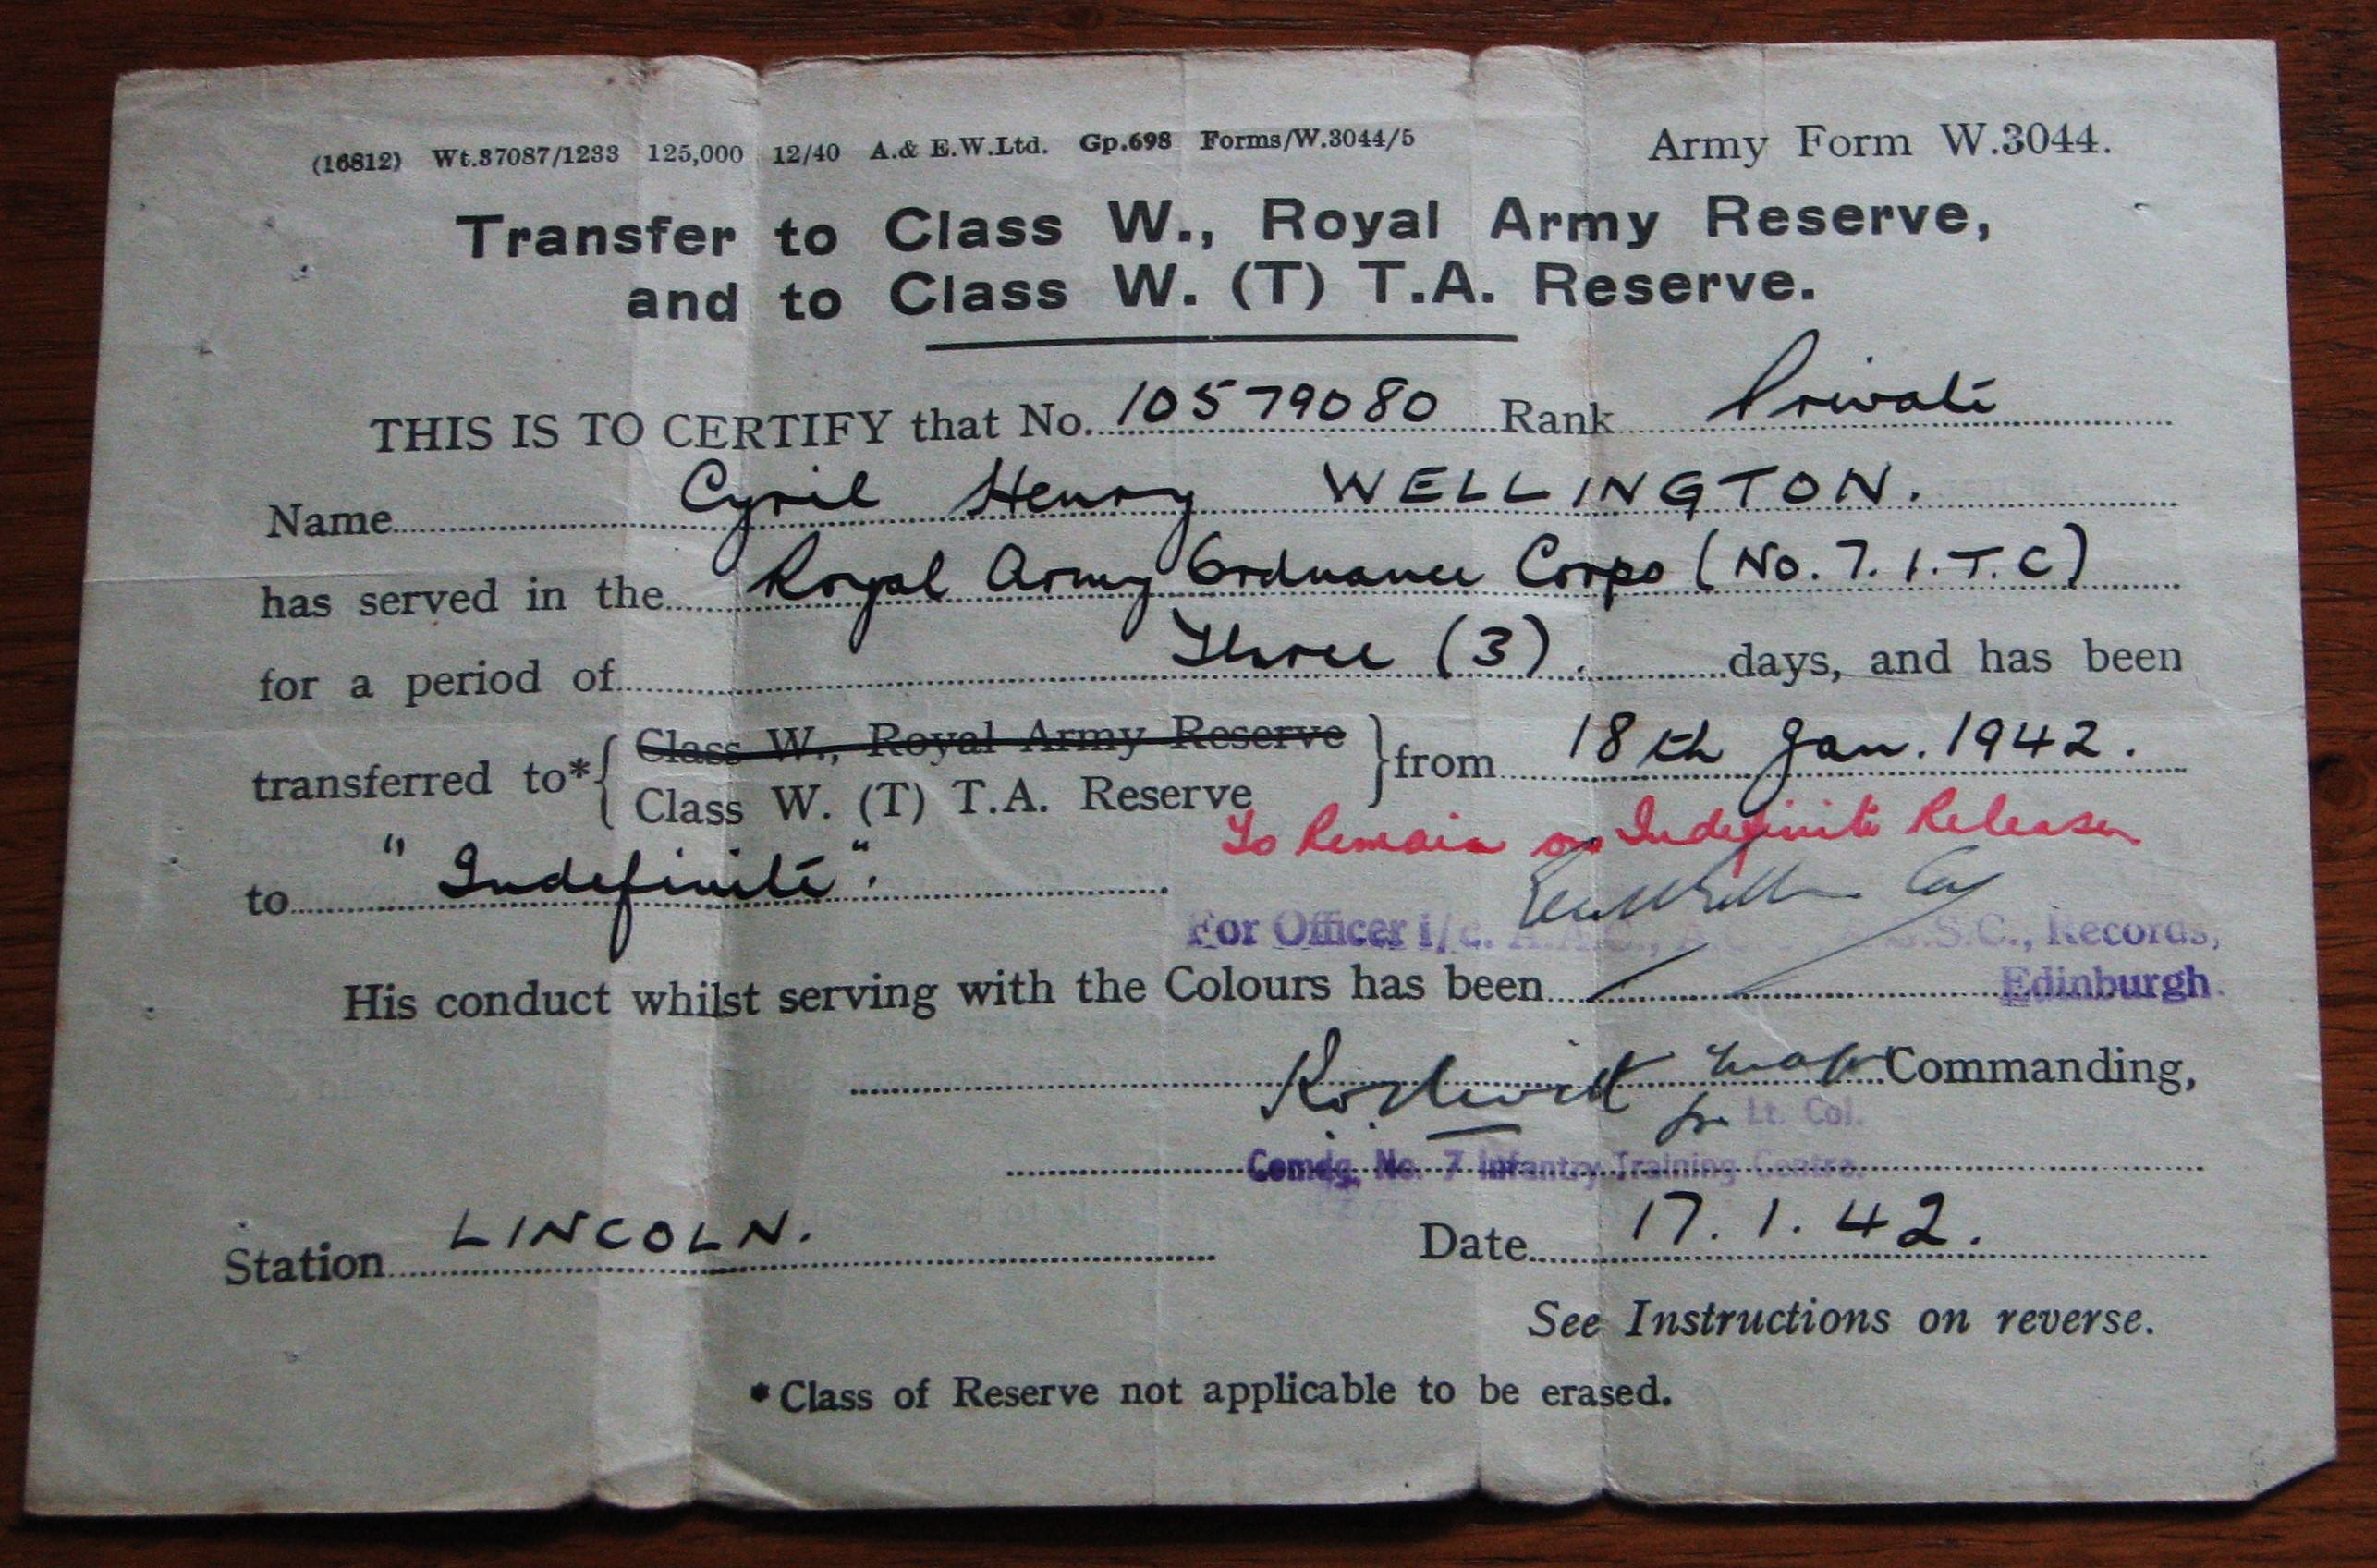 (16812) Wt.37087/1233 125,000 12/40 A.& E.W.Ltd. Gp.698 Forms/W.3044/5 Army Form W.3044.
Transfer to Class W., Royal Army Reserve,
and to Class W. (T) T.A. Reserve.
THIS IS TO CERTIFY that No. 10579080 Rank Private
Name Cyril Henry WELLINGTON.
has served in the Royal Army Ordnance Corps (No. 7. I.T.C)
for a period of Three (3). days, and has been
Class W., Royal Army Reserve
transferred to* from 18th Jan. 1942.
Class W. (T) T.A. Reserve
To Remain on Indefinite Release
to "Indefinite".
For Officer i/c. Records,
Edinburgh.
His conduct whilst serving with the Colours has been
Commanding,
Lt. Col.
Comdg. No. 7 Infantry Training Centre.
Station LINCOLN. Date 17.1.42.
See Instructions on reverse.
*Class of Reserve not applicable to be erased.